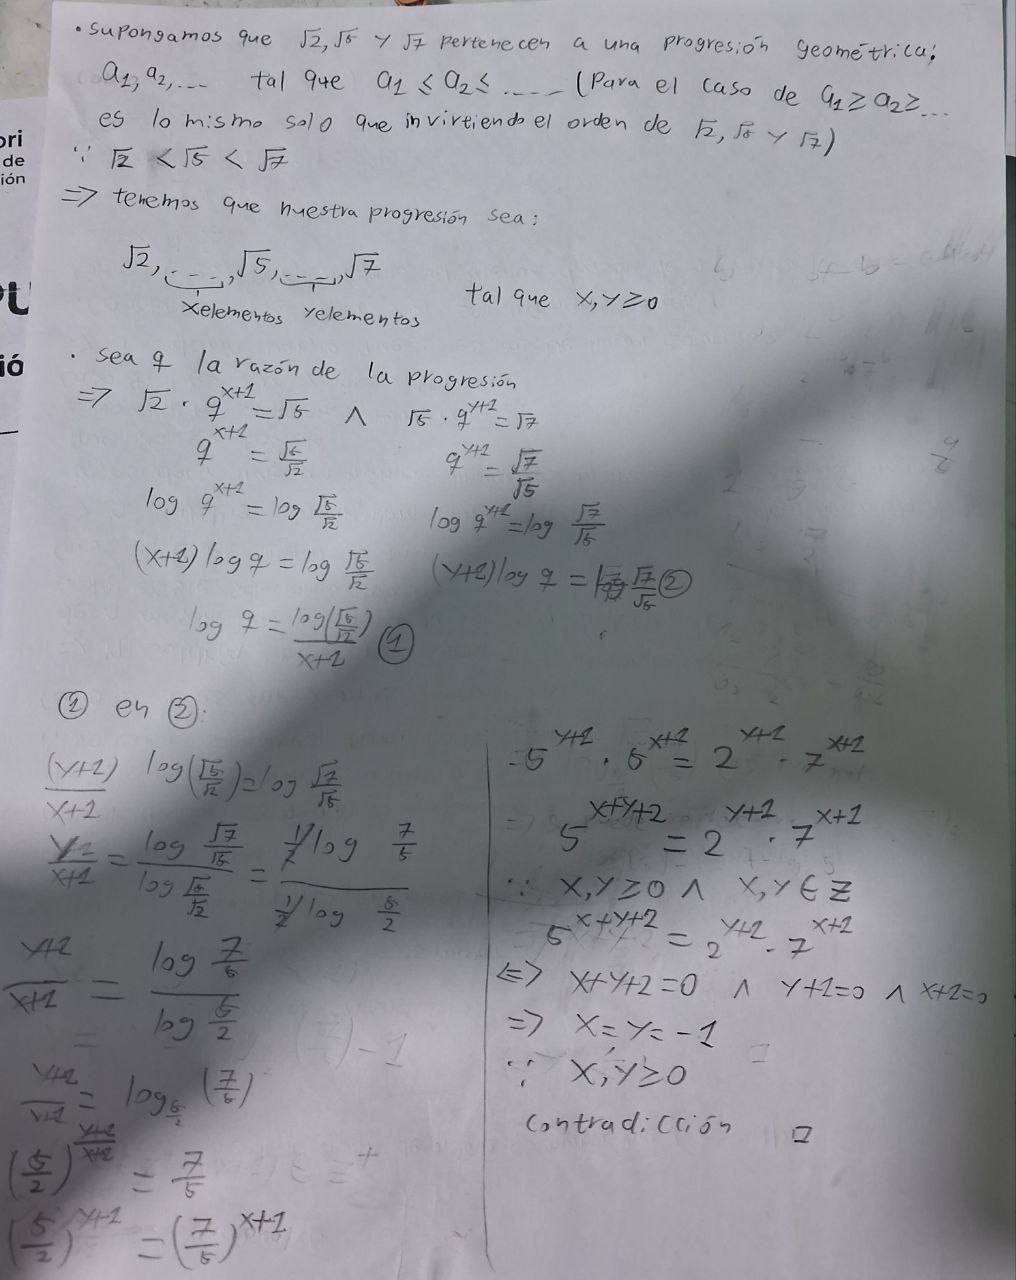 • Supongamos que √2, √5 y √7 pertenecen a una progresión geométrica:
a₁, a₂, ... tal que a₁ ≤ a₂ ≤ ..... (Para el caso de a₁ ≥ a₂ ≥ ...
es lo mismo solo que invirtiendo el orden de √2, √5 y √7)
∵ √2 < √5 < √7
=> tenemos que nuestra progresión sea:
√2, ...., √5, ....., √7
x elementos y elementos tal que x, y ≥ 0
• sea q la razón de la progresión
=> √2 · q^(x+1) = √5 ∧ √5 · q^(y+1) = √7
q^(x+1) = √5/√2 q^(y+1) = √7/√5
log q^(x+1) = log √5/√2 log q^(y+1) = log √7/√5
(x+1) log q = log √5/√2 (y+1) log q = log √7/√5 ②
log q = log(√5/√2)/(x+1) ①
① en ②:
(y+1)/(x+1) log(√5/√2) = log √7/√5
(y+1)/(x+1) = (log √7/√5)/(log √5/√2) = (1/2 log 7/5)/(1/2 log 5/2)
(y+1)/(x+1) = (log 7/5)/(log 5/2)
(y+1)/(x+1) = log_(5/2) (7/5)
(5/2)^((y+1)/(x+1)) = 7/5
(5/2)^(y+1) = (7/5)^(x+1)
= 5^(y+1) · 5^(x+1) = 2^(y+1) · 7^(x+1)
5^(x+y+2) = 2^(y+1) · 7^(x+1)
∵ x, y ≥ 0 ∧ x, y ∈ Z
5^(x+y+2) = 2^(y+1) · 7^(x+1)
<=> x+y+2=0 ∧ y+1=0 ∧ x+1=0
=> x = y = -1
∵ x, y ≥ 0
contradicción □
ori
de
ión
ió